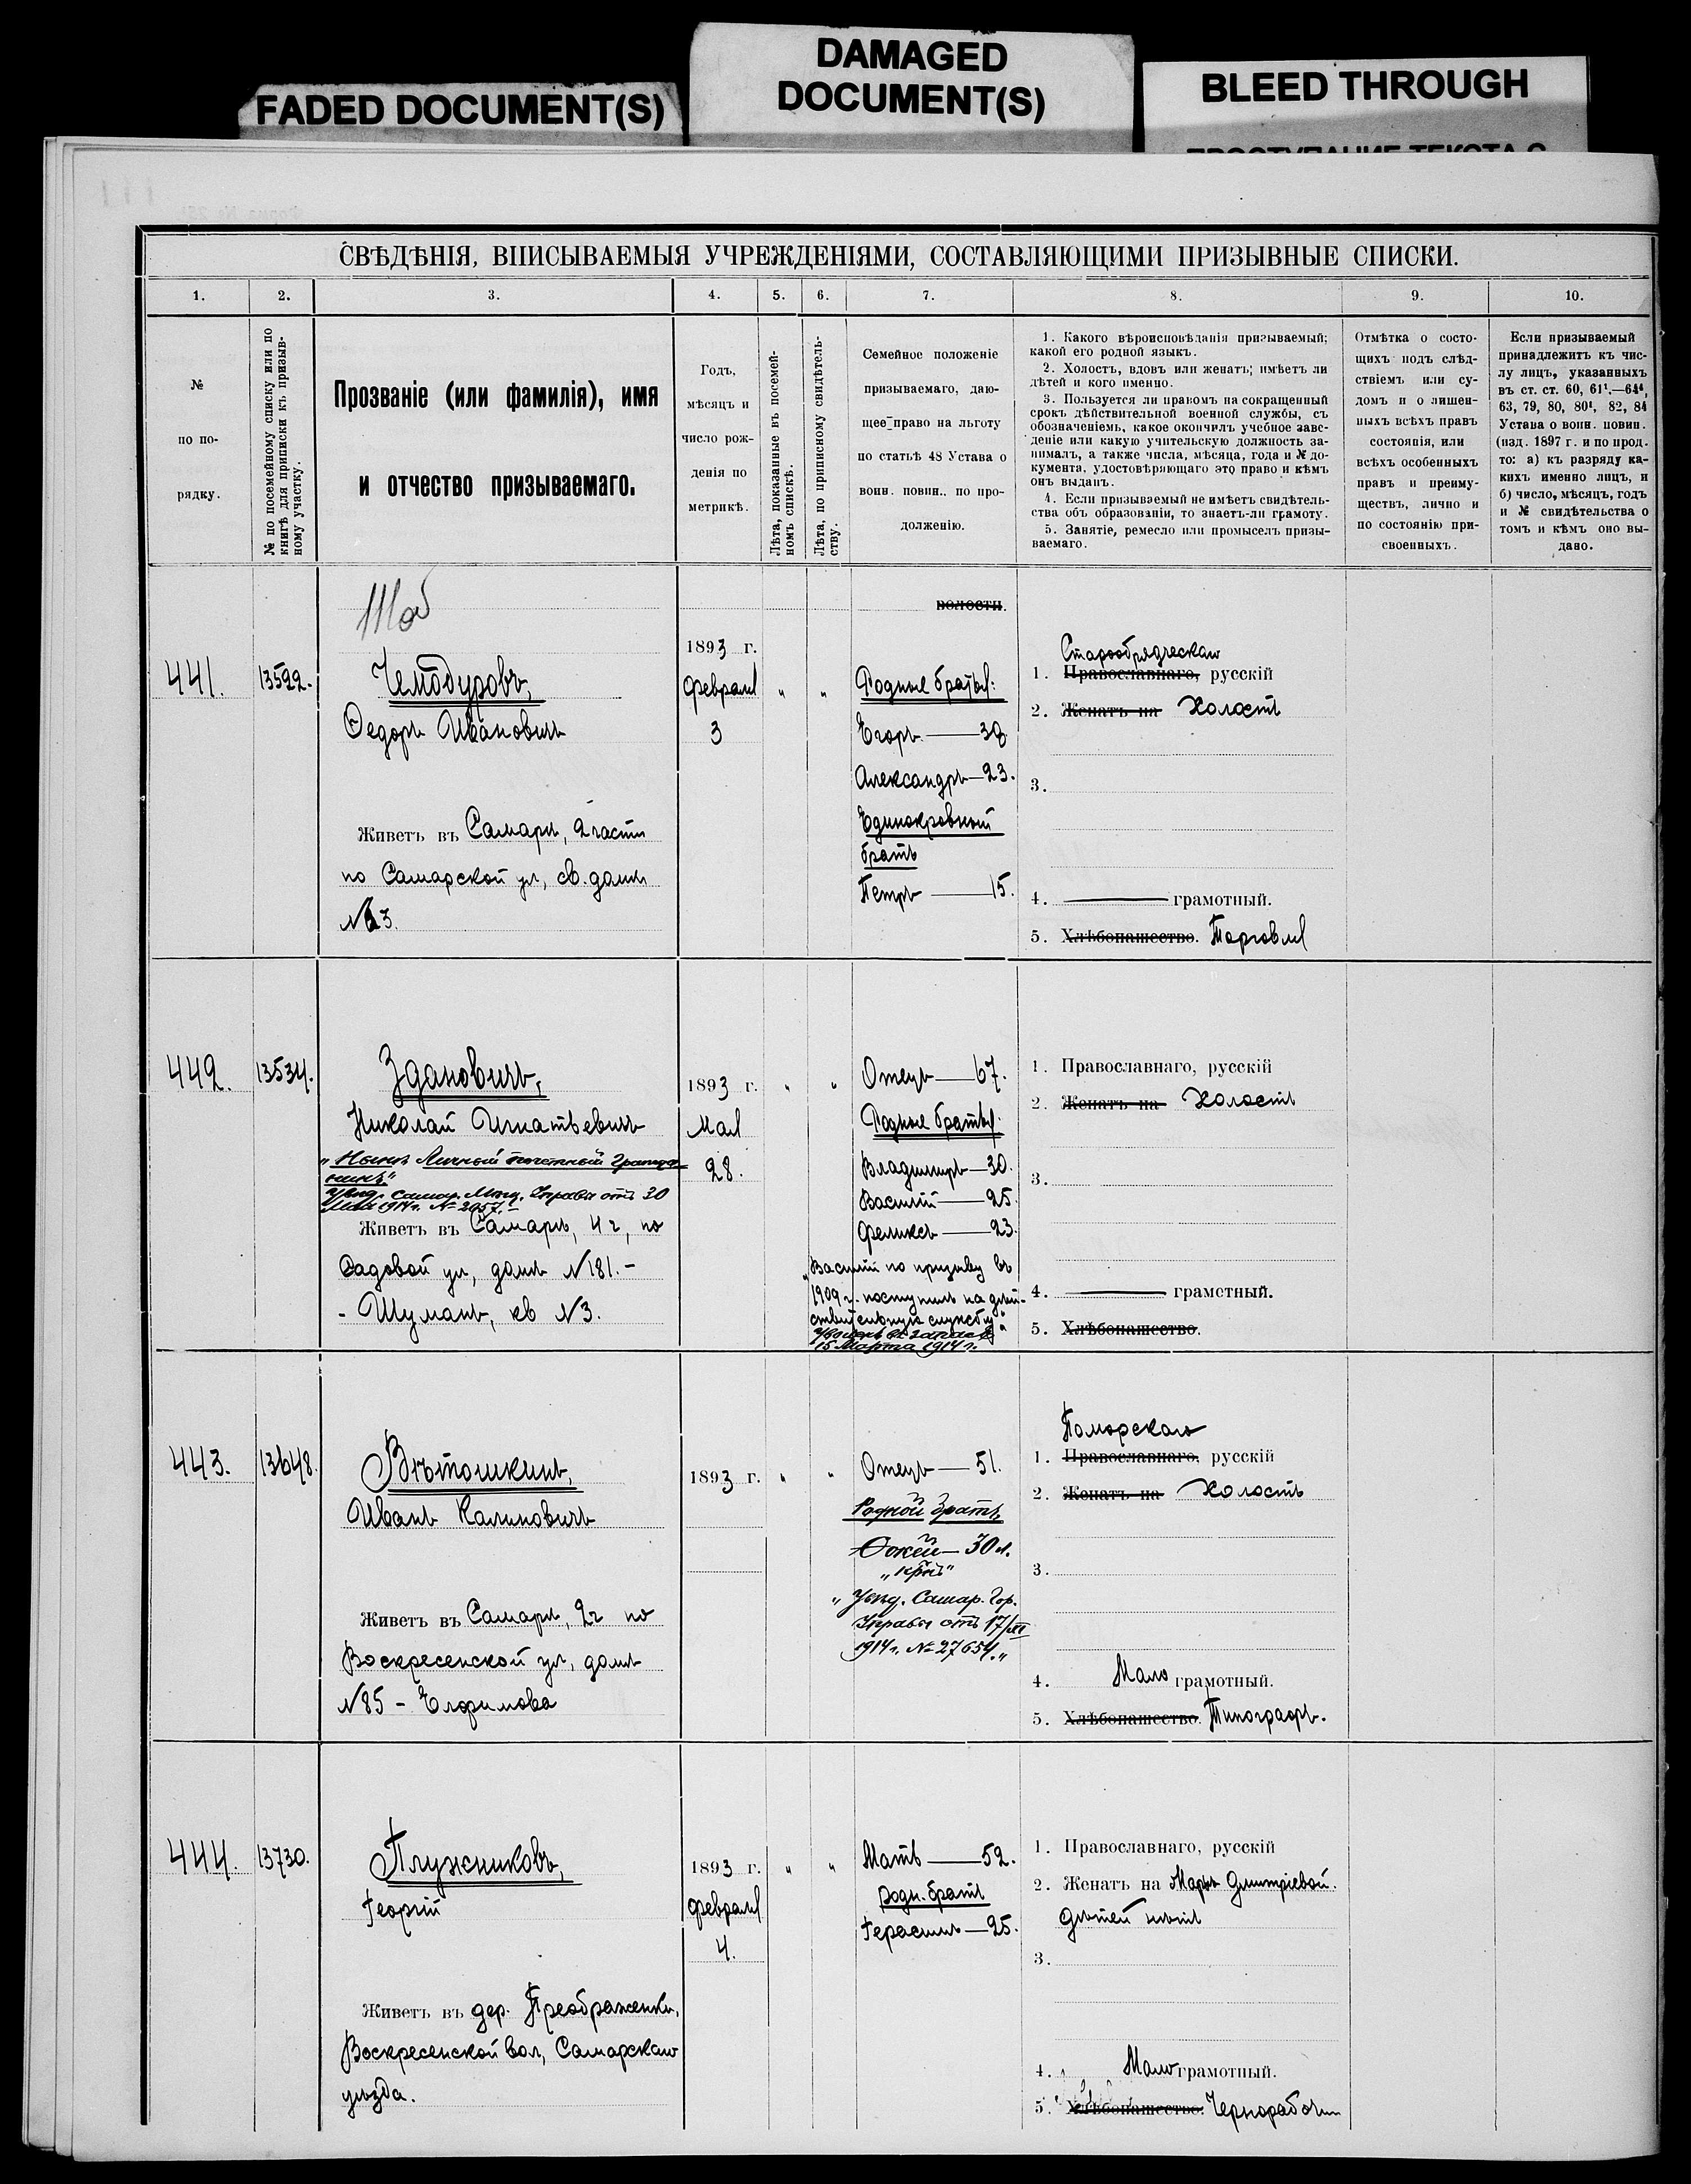 FADED DOCUMENT(S)
DAMAGED
DOCUMENT(S)
BLEED THROUGH
СВѢДѢНІЯ, ВПИСЫВАЕМЫЯ УЧРЕЖДЕНІЯМИ, СОСТАВЛЯЮЩИМИ ПРИЗЫВНЫЕ СПИСКИ.
1. 2. 3. 4. 5. 6. 7. 8. 9. 10.
№
по по-
рядку.
№ по посемейному списку или по
книгѣ для приписки къ призыв-
ному участку.
Прозваніе (или фамилія), имя
и отчество призываемаго.
Годъ,
мѣсяцъ и
число рож-
денія по
метрикѣ.
Лѣта, показанныя въ посемей-
номъ спискѣ.
Лѣта, по приписному свидѣтель-
ству.
Семейное положеніе
призываемаго, даю-
щее право на льготу
по статьѣ 48 Устава о
воин. повин.. по про-
долженію.
1. Какого вѣроисповѣданія призываемый;
какой его родной языкъ.
2. Холостъ, вдовъ или женатъ; имѣетъ ли
дѣтей и кого именно.
3. Пользуется ли правомъ на сокращенный
срокъ дѣйствительной военной службы, съ
обозначеніемъ, какое окончилъ учебное заве-
деніе или какую учительскую должность за-
нималъ, а также числа, мѣсяца, года и № до-
кумента, удостовѣряющаго это право и кѣмъ
онъ выданъ.
4. Если призываемый не имѣетъ свидѣтель-
ства объ образованіи, то знаетъ-ли грамоту.
5. Занятіе, ремесло или промыселъ призы-
ваемаго.
Отмѣтка о состо-
щихъ подъ слѣд-
ствіемъ или су-
домъ и о лишен-
ныхъ всѣхъ правъ
состоянія, или
всѣхъ особенныхъ
правъ и преиму-
ществъ, лично и
по состоянію при-
своенныхъ.
Если призываемый
принадлежитъ къ чис-
лу лицъ, указанныхъ
въ ст. ст. 60, 61¹.—64⁴,
63, 79, 80, 80¹, 82, 84
Устава о воин. повин.
(изд. 1897 г. и по прод.
то: а) къ разряду ка-
кихъ именно лицъ, и
б) число, мѣсяцъ, годъ
и № свидѣтельства о
томъ и кѣмъ оно вы-
дано.
волости.
441.
13522.
Чемодуровъ,
Ѳедоръ Ивановичъ
Живетъ въ Самарѣ, 2 части
по Самарской ул, св. домъ
1893 г.
Февраля
3
" "
Родные братья:
Егоръ — 38
Александръ — 23.
Единокровный
братъ
Петръ — 15.
Старообрядческаго
1. Православнаго, русскій
2. Женатъ на Холостъ
3.
4. — грамотный.
5. Хлѣбопашество. Торговля
442.
13534.
Здановичъ,
Николай Игнатьевичъ
"Нынѣ Личный почетный Гражда-
нинъ"
Увѣд. Самар. Мѣщ. Управы отъ 30
Мая 1914 г. № 2057.–
Живетъ въ Самарѣ, 4 ч, по
Садовой ул, домъ № 181.–
- Шуманъ, кв № 3.
1893 г.
Мая
28.
" "
Отецъ — 67.
Родные братья:
Владимиръ — 30.
Василій — 25.
Феликсъ — 23.
"Василій по призыву въ
1909 г. поступилъ на дѣй-
ствительную службу"
уволенъ въ запасъ
15 Марта 1914 г.
1. Православнаго, русскій
2. Женатъ на Холостъ
3.
4. — грамотный.
5. Хлѣбопашество.
443.
13648.
Вѣтошкинъ,
Иванъ Калиновичъ
Живетъ въ Самарѣ, 2 ч по
Воскресенской ул, домъ
№ 85 – Елфимова
1893 г.
" "
Отецъ — 51.
Родной братъ
— 30 л.
"Увѣд. Самар. Гор.
Управы отъ 17/XI
1914 г. № 27654."
Поморскаго
1. Православнаго, русскій
2. Женатъ на Холостъ
3.
4. Мало грамотный.
5. Хлѣбопашество. Типографъ.
444.
13730.
Плужниковъ,
Георгій
Живетъ въ дер. Преображенкѣ,
Воскресенской вол, Самарскаго
уѣзда.
1893 г.
Февраля
4.
" "
Мать — 52.
родн. братъ
Герасимъ — 25.
1. Православнаго, русскій
2. Женатъ на Марьѣ Дмитріевой.
дѣтей нѣтъ
3.
4. Мало грамотный.
5. Хлѣбопашество. Чернорабочій